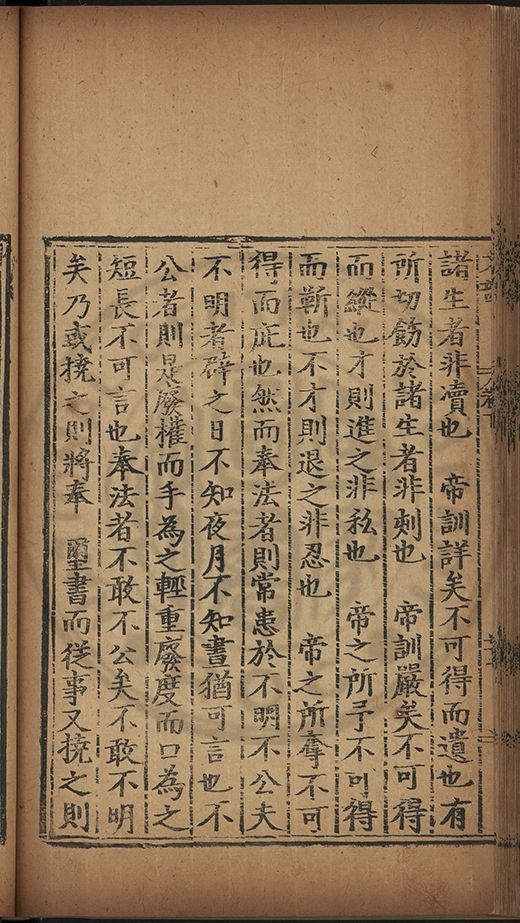 諸生者非瀆也　帝訓詳矣不可得而遺也有
所切飭於諸生者非刺也　帝訓嚴矣不可得
而縱也才則進之非私也　帝之所予不可得
而靳也不才則退之非忍也　帝之所奪不可
得而庇也然而奉法者則常患於不明不公夫
不明者辟之日不知夜月不知晝猶可言也不
公者則是廢權而手為之輕重廢度而口為之
短長不可言也奉法者不敢不公矣不敢不明
矣乃或撓之則將奉　璽書而從事又撓之則